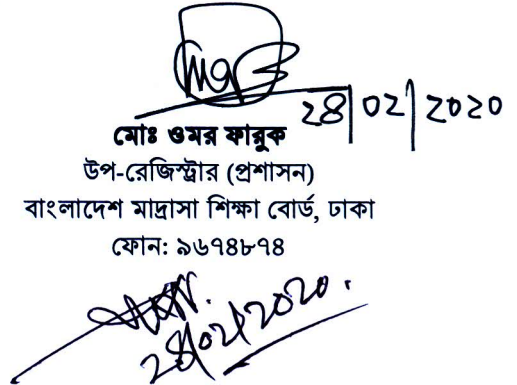 28|02|2020
মোঃ ওমর ফারুক
উপ-রেজিস্ট্রার (প্রশাসন)
বাংলাদেশ মাদ্রাসা শিক্ষা বোর্ড, ঢাকা
ফোন: ৯৬৭৪৮৭৪
28/02/2020.